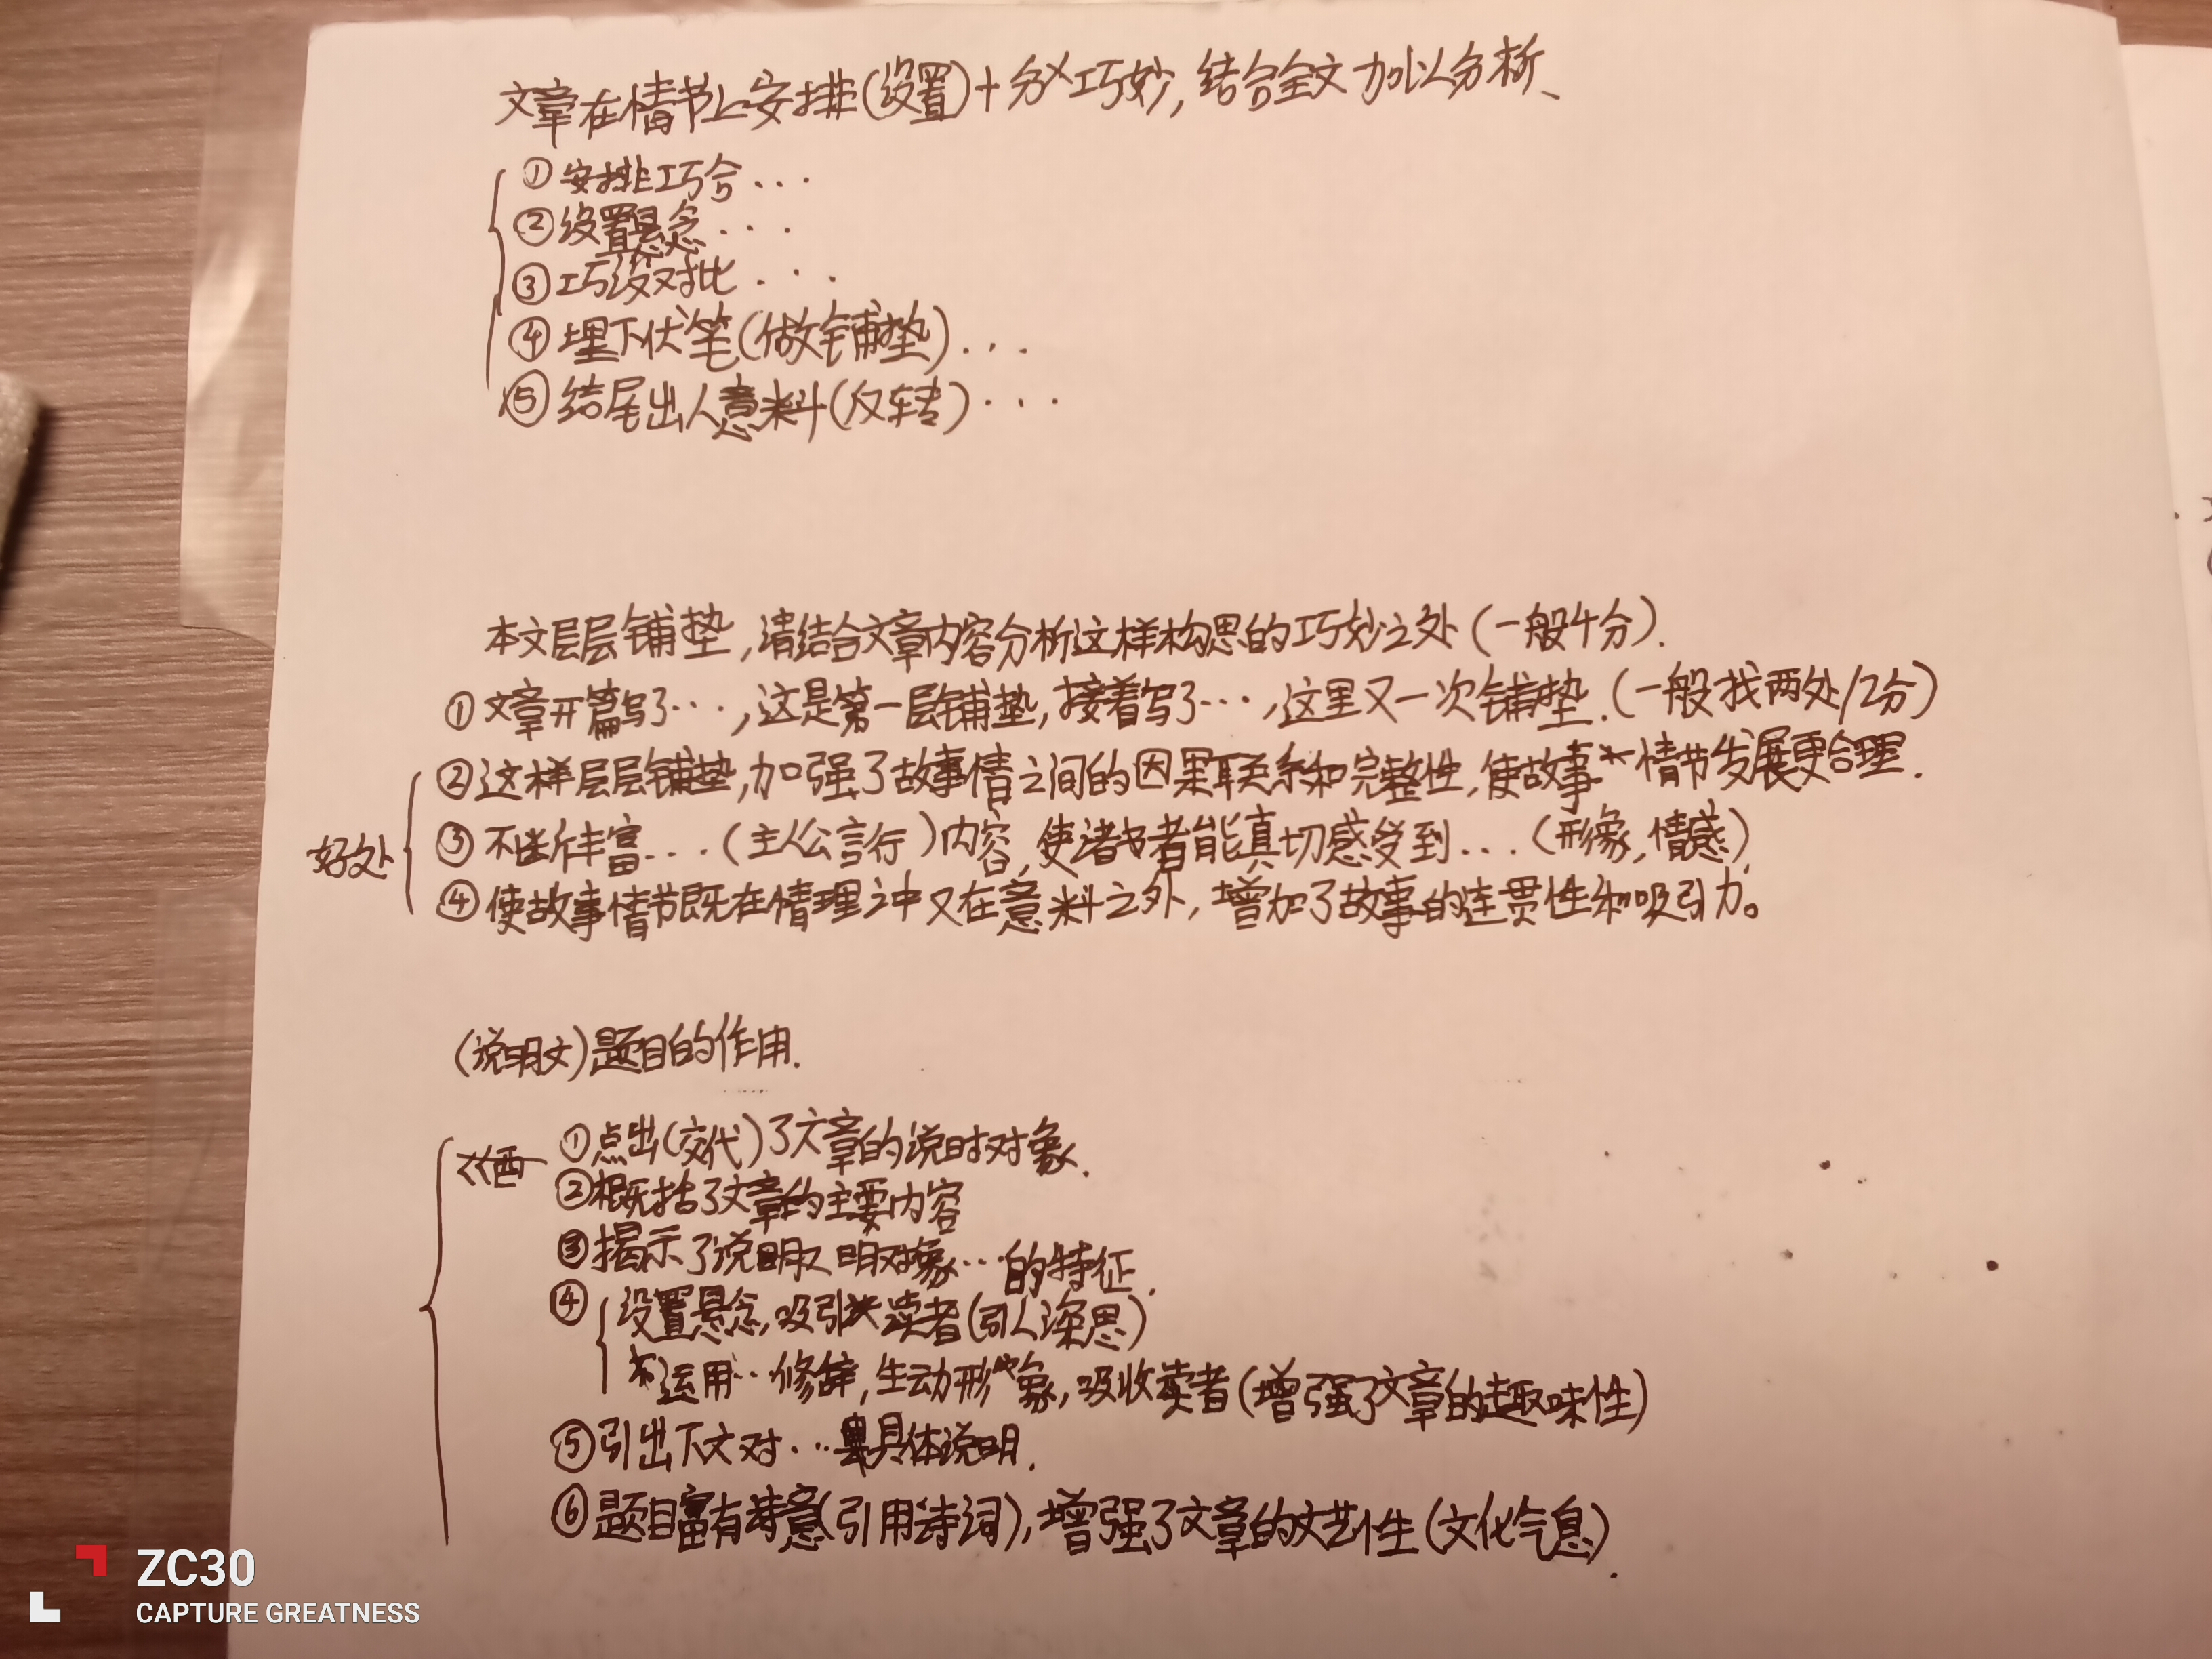 文章在情节上安排(设置)十分巧妙,结合全文加以分析、
①安排巧合...
②设置悬念...
③巧设对比...
④埋下伏笔(做铺垫)...
⑤结尾出人意料(反转)...
本文层层铺垫,请结合文章内容分析这样构思的巧妙之处(一般4分).
①文章开篇写了...,这是第一层铺垫,接着写了...,这里又一次铺垫.(一般找两处/2分)
②这样层层铺垫,加强了故事情之间的因果联系和完整性,使故事情节发展更合理.
好处
③不断丰富...(主人公言行)内容,使读者能真切感受到...(形象,情感)
④使故事情节既在情理之中又在意料之外,增加了故事的连贯性和吸引力。
(说明文)题目的作用.
①点出(交代)了文章的说明对象.
②概括了文章的主要内容
③揭示了说明对象...的特征.
④设置悬念,吸引读者(引人深思)
运用...修辞,生动形象,吸收读者(增强了文章的趣味性)
⑤引出下文对...具体说明.
⑥题目富有诗意(引用诗词),增强了文章的文艺性(文化气息).
ZC30
CAPTURE GREATNESS